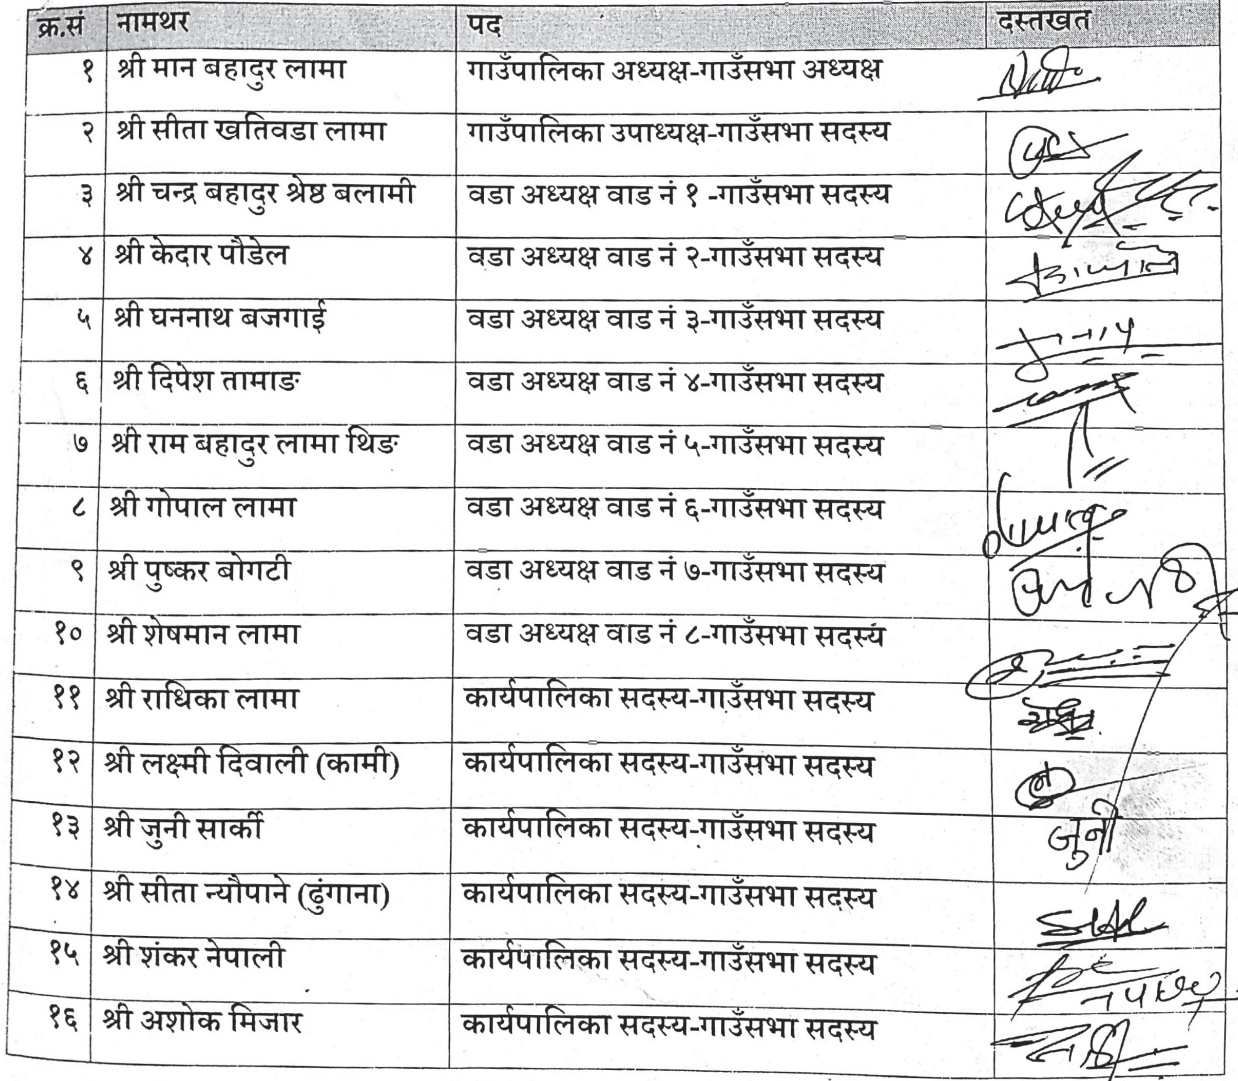 क्र.सं नामथर पद दस्तखत
१ श्री मान बहादुर लामा गाउँपालिका अध्यक्ष-गाउँसभा अध्यक्ष
२ श्री सीता खतिवडा लामा गाउँपालिका उपाध्यक्ष-गाउँसभा सदस्य
३ श्री चन्द्र बहादुर श्रेष्ठ बलामी वडा अध्यक्ष वाड नं १ -गाउँसभा सदस्य
४ श्री केदार पौडेल वडा अध्यक्ष वाड नं २-गाउँसभा सदस्य
५ श्री घननाथ बजगाई वडा अध्यक्ष वाड नं ३-गाउँसभा सदस्य
६ श्री दिपेश तामाङ वडा अध्यक्ष वाड नं ४-गाउँसभा सदस्य
७ श्री राम बहादुर लामा थिङ वडा अध्यक्ष वाड नं ५-गाउँसभा सदस्य
८ श्री गोपाल लामा वडा अध्यक्ष वाड नं ६-गाउँसभा सदस्य
९ श्री पुष्कर बोगटी वडा अध्यक्ष वाड नं ७-गाउँसभा सदस्य
१० श्री शेषमान लामा वडा अध्यक्ष वाड नं ८-गाउँसभा सदस्य
११ श्री राधिका लामा कार्यपालिका सदस्य-गाउँसभा सदस्य
१२ श्री लक्ष्मी दिवाली (कामी) कार्यपालिका सदस्य-गाउँसभा सदस्य
१३ श्री जुनी सार्की कार्यपालिका सदस्य-गाउँसभा सदस्य जुनी
१४ श्री सीता न्यौपाने (ढुंगाना) कार्यपालिका सदस्य-गाउँसभा सदस्य
१५ श्री शंकर नेपाली कार्यपालिका सदस्य-गाउँसभा सदस्य
१६ श्री अशोक मिजार कार्यपालिका सदस्य-गाउँसभा सदस्य